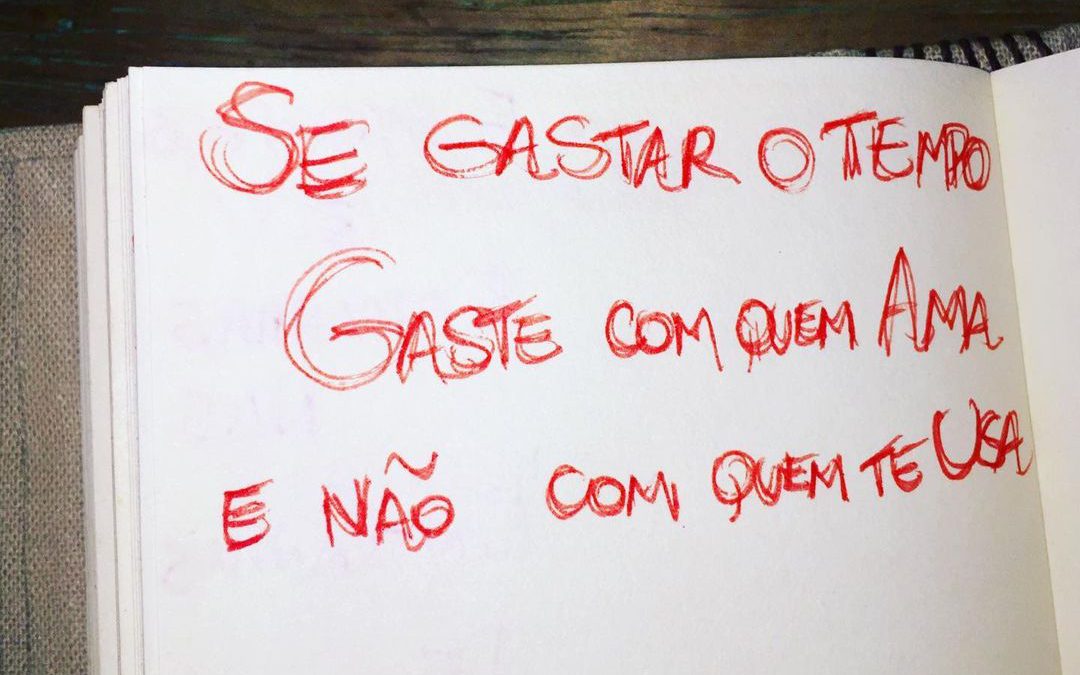 SE GASTAR O TEMPO
GASTE COM QUEM AMA
E NÃO COM QUEM TE USA